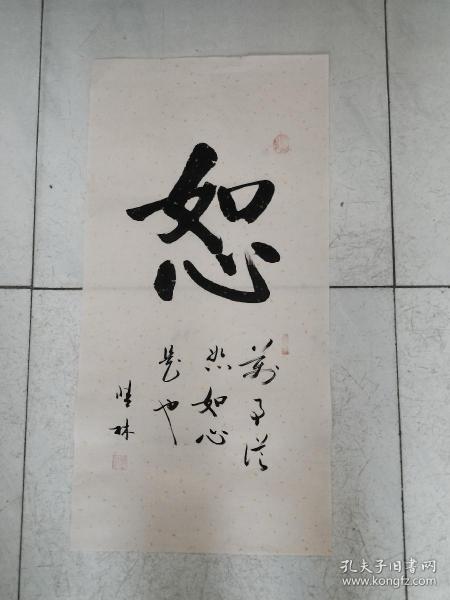 恕
萬事從
恕如心
是也
晴林
孔夫子旧书网
www.kongfz.com